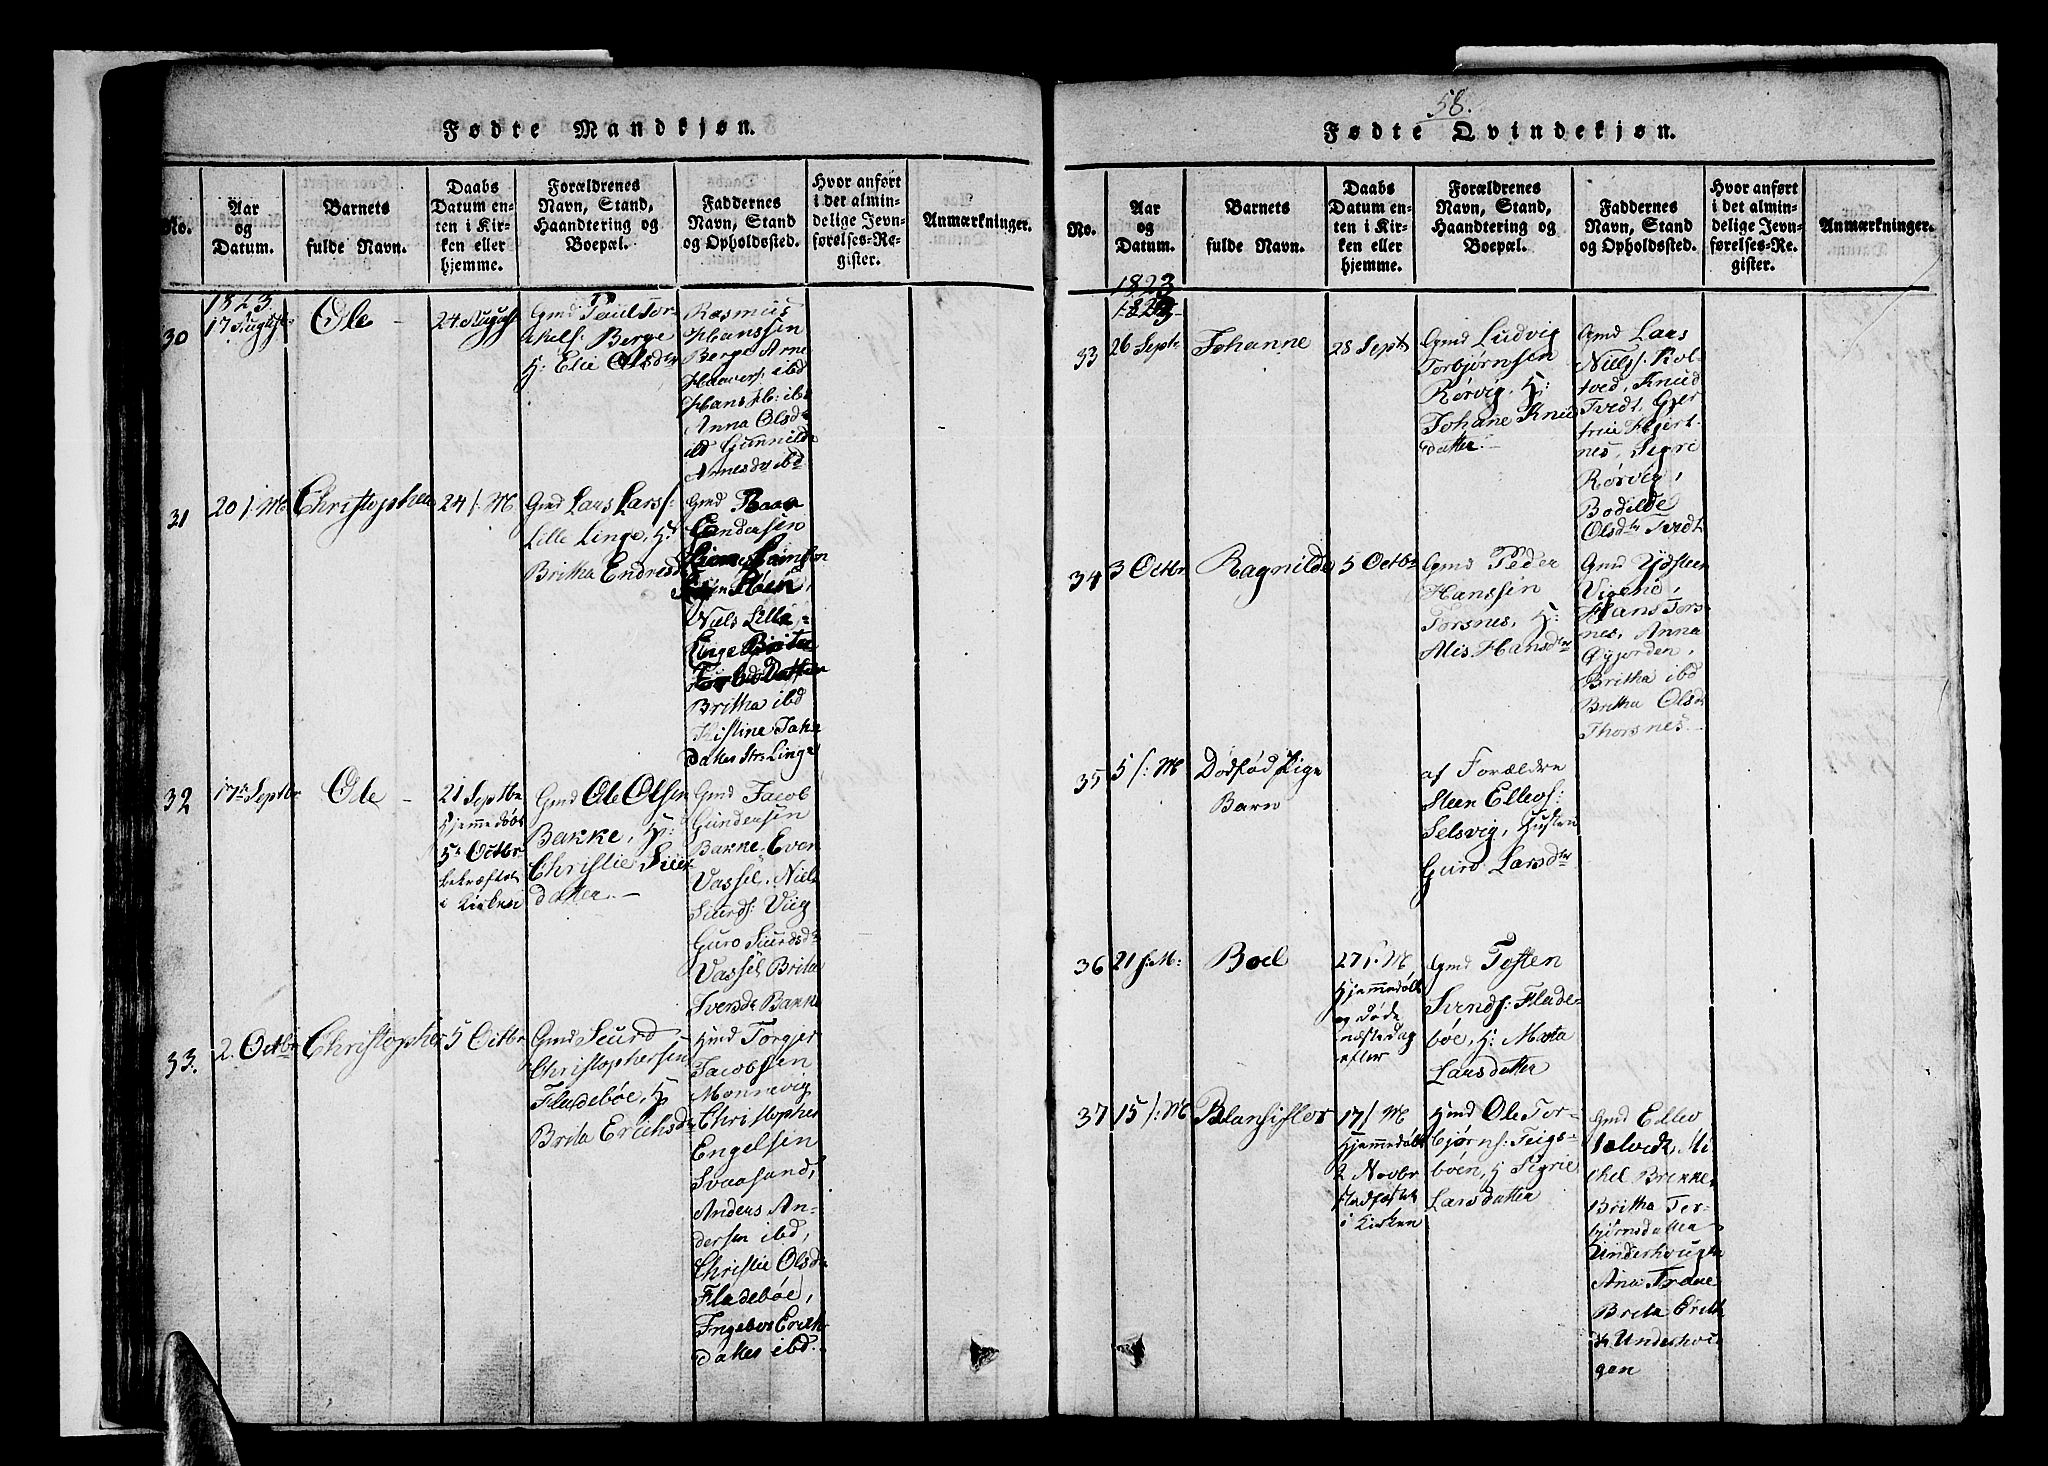 58.
Fødte Mandkjøn.
No.
Aar
og
Datum.
Barnets
fulde Navn.
Daabs
Datum en-
ten i Kir-
ken eller
hjemme.
Forældrenes
Navn, Stand,
Haandtering og
Boepæl.
Faddernes
Navn, Stand
og Opholdssted.
Hvor anført
i det almin-
delige Jevn-
førelses-Re-
gister.
Anmærkninger.
1823
30
17 August
Ole
24 August
Gmd Paul Tor-
kels: Berge
H: Elie Olsdtr
Rasmus
Hanssen
Berge Arne
Haavers: ibd
Hans H: ibd
Anna Olsdr
ibd Gunnilde
Arnesdr ibd
31
20 /: M
Christopher
24 /: M
Gmd Lars Lars:
Lille Linge, H:
Britha Endresdr
Gmd
Niels Lille
Linge
Britha ibd
Kistine
Datter Str: Linge
32
17de Septbr
Ole
21 Septbr
Hjemmedøbt
5te Octbr
bekræftet
i Kirken
Gmd Ole Olsen
Bakke, H:
Christie Siur
datter
Gmd Jacob
Gundersen
Bakke, Iver
Vassel. Niels
Siurds: Viig
Guro Siurdsdr
Vassel Brita
Iversdr Bakke
33.
2. Octbr
Christopher
5 Octbr
Gmd Siurd
Christophersen
Fladebøe, H
Brita Erichsdr
Hmd Torger
Jacobsen
Monnevig
Christopher
Engelsen
Svaasand,
Anders An-
dersen ibd,
Christie Olsdr
Fladebøe,
Ingebor Erichs
datter ibd.
Fødte Qvindekjøn.
No.
Aar
og
Datum.
Barnets
fulde Navn.
Daabs
Datum en-
ten i Kir-
ken eller
hjemme.
Forældrenes
Navn, Stand,
Haandtering og
Boepæl.
Faddernes
Navn, Stand
og Opholdssted.
Hvor anført
i det almin-
delige Jevn-
førelses-Re-
gister.
Anmærkninger.
1823
1823
33
26 Septr
Johanne
28 Septr
Gmd Ludvig
Torbjørnsen
Rørvig, H:
Johane Knud
datter
Gmd Lars
Niels: Rol-
tved, Knud
Tvedt, Gjer
true Hjert-
nes, Sigri
Rørvig,
Bodilde
Olsdtr Tvedt
34
3 Octbr
Ragnilde
5 Octbr
Gmd Peder
Hanssen
Torsnes, H:
Alis Hansdtr
Gmd Ydsteen
Vigene,
Hans Tors-
nes, Anna
Gjorden,
Britha ibd
Britha Olsdr
Thorsnes
35
5 /: M
Dødfød Pige
Barn
af Forældre
Steen Ellevs:
Selsvig, Hustru
Gurid Larsdtr
36
21 /: M:
Boel
27 /: M
Hjemmedøbt
og døde
næste dag
efter
Gmd Tosten
Svends: Flade-
bøe, H: Marta
Larsdatter
37
15 /: M
Blansiflor
17 /: M
Hjemmedøbt
2 Novbr
stadfæstet
i Kirken
Hmd Ole Tor-
bjørns: Teigs-
bøen, H Sigrie
Larsdatter
Gmd Ellev
Tolvedt, Mi
chel Brekke,
Britha Tor-
bjørnsdatter
Underhougen
Ana Træne
Brita Erich
Underhou
gen